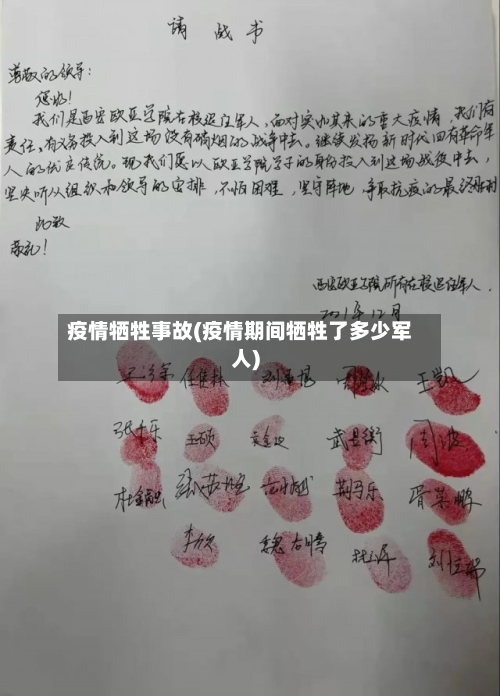 请战书
尊敬的领导：
您好！
我们是西安欧亚学院在校退役军人，面对突如其来的重大疫情，我们有
责任、有义务投入到这场没有硝烟的战争中去。继续发扬新时代四有革命军
人的优良传统。现我们愿以欧亚学院学子的身份投入到这场战役中去，
坚决听从组织和领导的安排，不怕困难，坚守阵地，争取抗疫的最终胜利
此致
敬礼！
西安欧亚学院所有在校退役军人.
2021年12月
疫情牺牲事故(疫情期间牺牲了多少军
人)
王凯
张乐
王硕
武星衡
周波
荆马乐
李欣